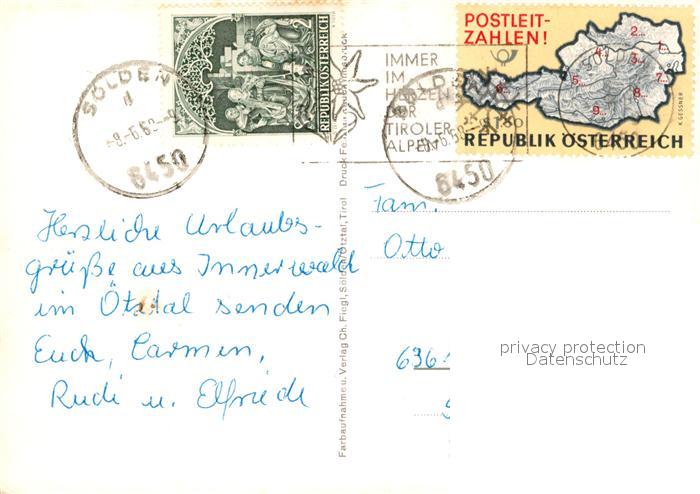 SÖLDEN
6450
2
REPUBLIK ÖSTERREICH
IMMER
IM
HERZEN
DER
TIROLER
ALPEN
6450
POSTLEIT-
ZAHLEN!
2...
1...
4...
3...
5...
7...
6...
8...
9...
K. GESSNER
REPUBLIK ÖSTERREICH
Herzliche Urlaubs-
grüße aus Innerwald
im Ötztal senden
Euch, Carmen,
Rudi u. Elfriede
Farbaufnahme u. Verlag Ch. Fiegl, Sölden/Ötztal, Tirol
Fam.
Otto
636
privacy protection
Datenschutz